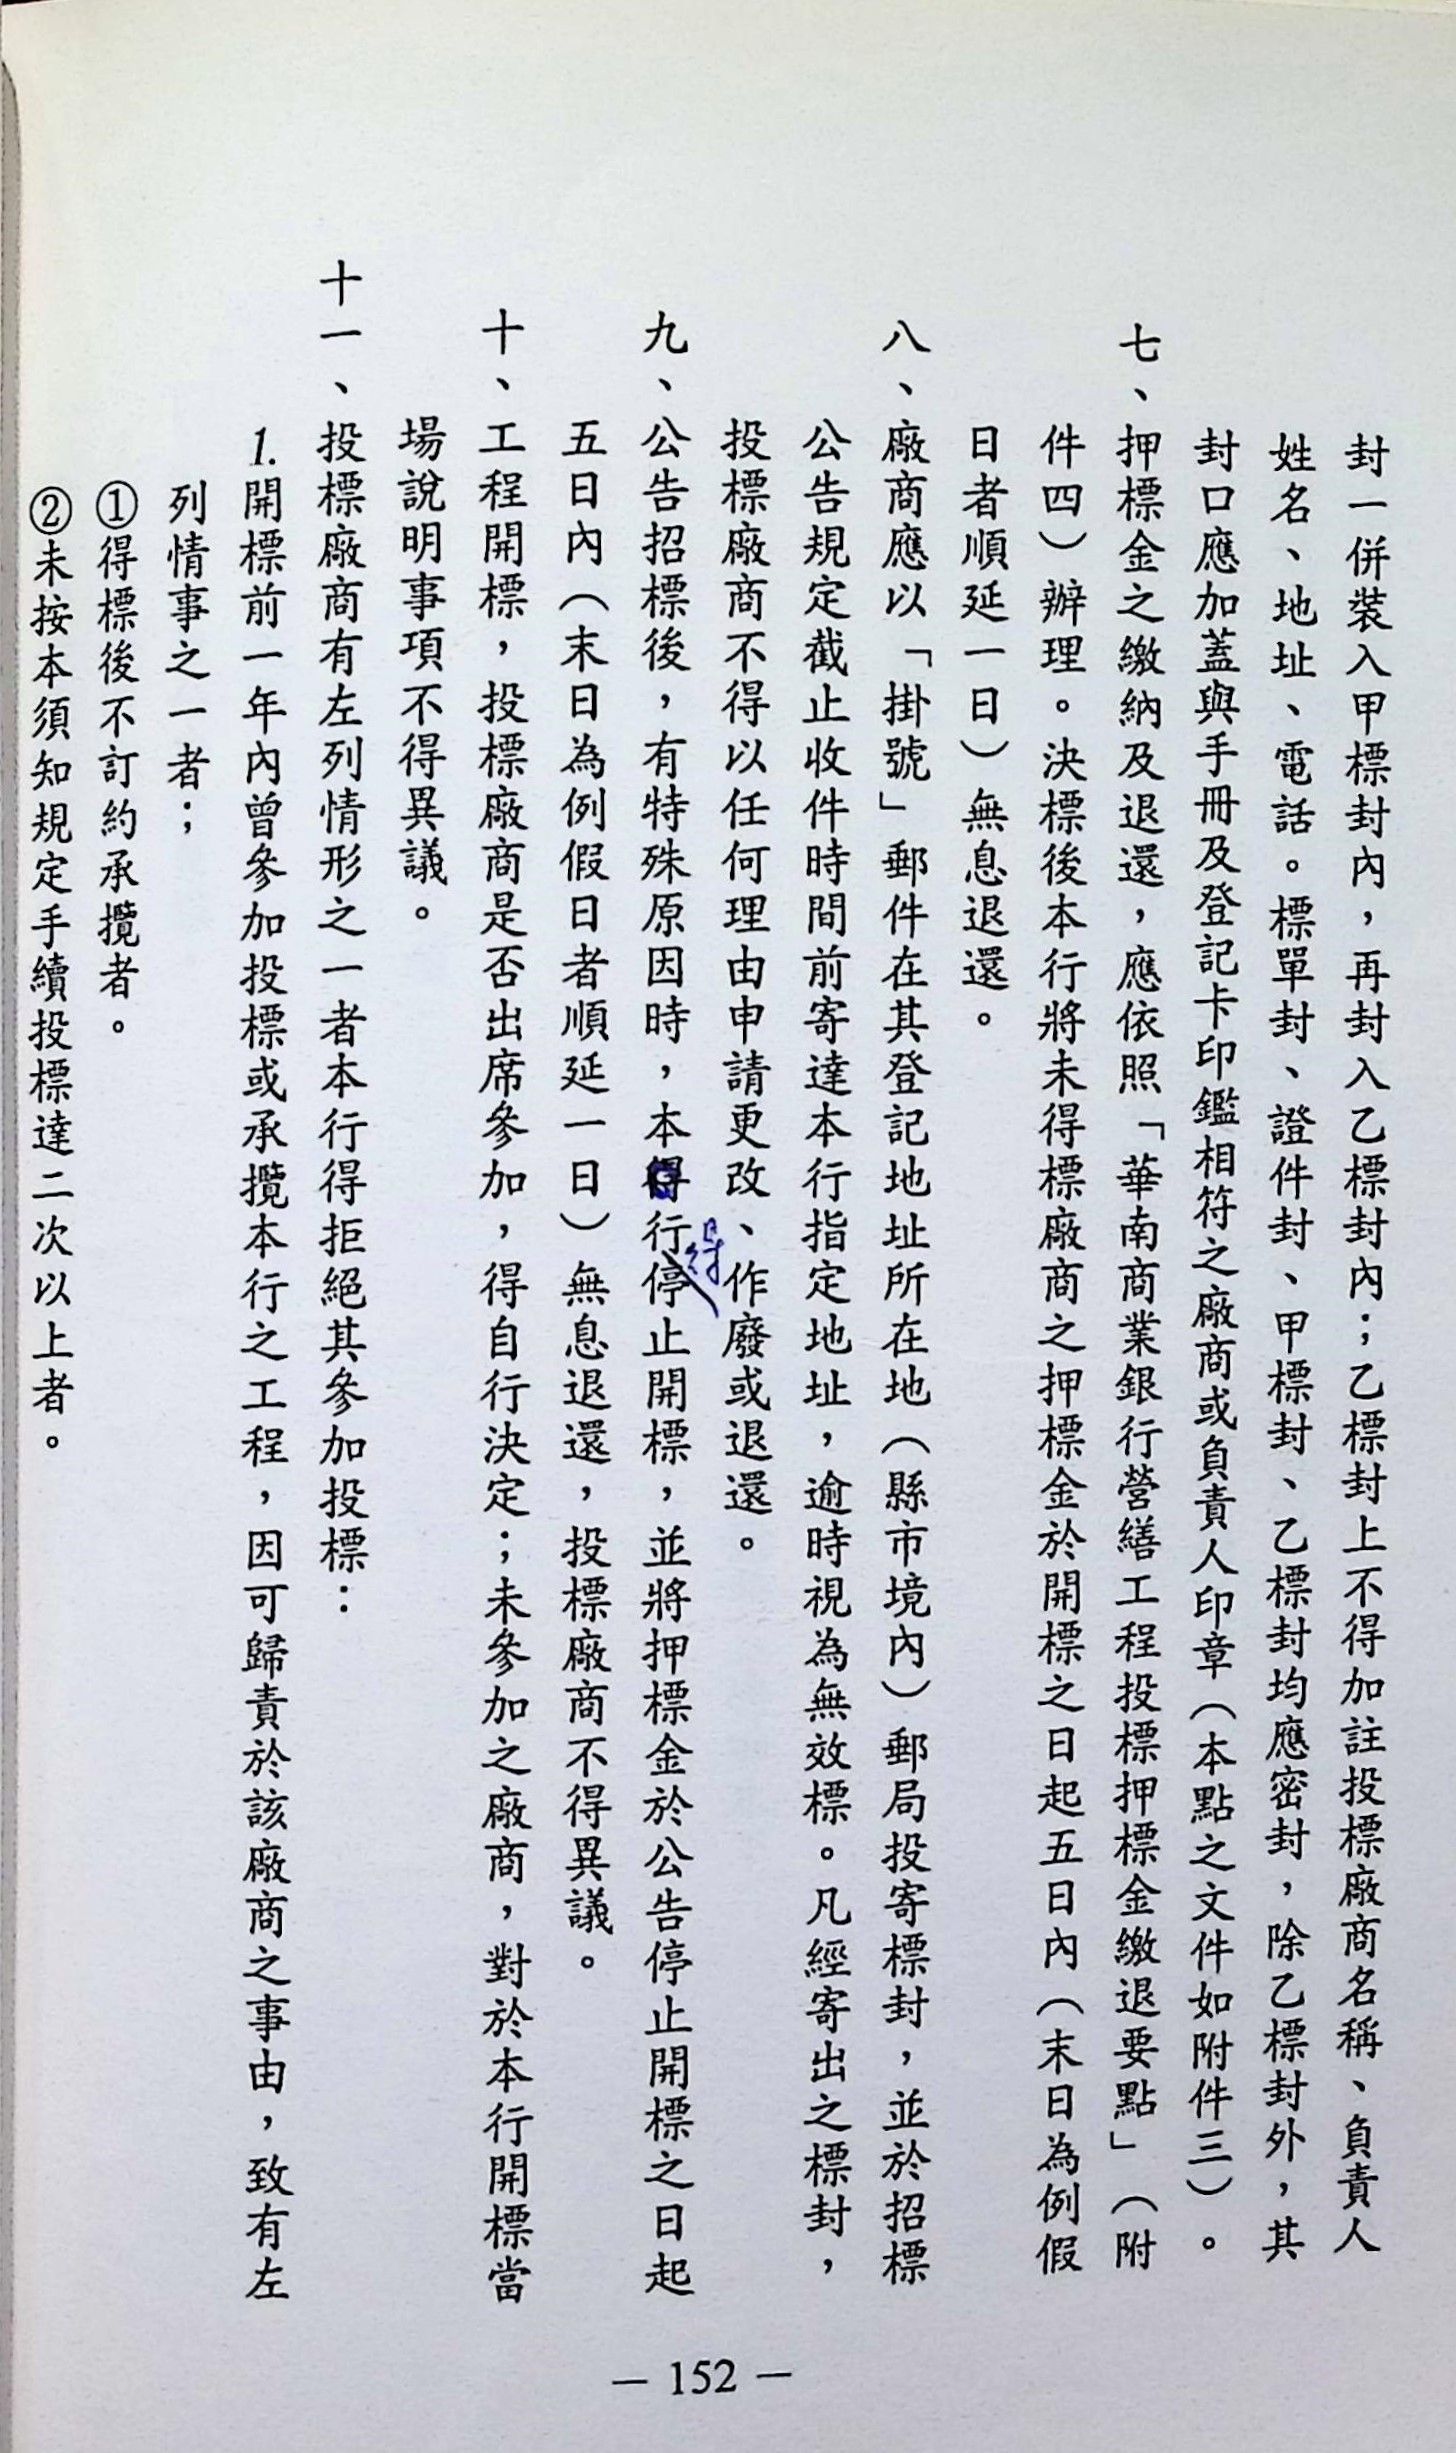 封一併裝入甲標封內，再封入乙標封內；乙標封上不得加註投標廠商名稱、負責人
姓名、地址、電話。標單封、證件封、甲標封、乙標封均應密封，除乙標封外，其
封口應加蓋與手冊及登記卡印鑑相符之廠商或負責人印章（本點之文件如附件三）。
七、押標金之繳納及退還，應依照「華南商業銀行營繕工程投標押標金繳退要點」（附
件四）辦理。決標後本行將未得標廠商之押標金於開標之日起五日內（末日為例假
日者順延一日）無息退還。
八、廠商應以「掛號」郵件在其登記地址所在地（縣市境內）郵局投寄標封，並於招標
公告規定截止收件時間前寄達本行指定地址，逾時視為無效標。凡經寄出之標封，
投標廠商不得以任何理由申請更改、作廢或退還。
九、公告招標後，有特殊原因時，本得行停止開標，並將押標金於公告停止開標之日起
得
五日內（末日為例假日者順延一日）無息退還，投標廠商不得異議。
十、工程開標，投標廠商是否出席參加，得自行決定；未參加之廠商，對於本行開標當
場說明事項不得異議。
十一、投標廠商有左列情形之一者本行得拒絕其參加投標：
1.開標前一年內曾參加投標或承攬本行之工程，因可歸責於該廠商之事由，致有左
列情事之一者；
①得標後不訂約承攬者。
②未按本須知規定手續投標達二次以上者。
— 152 —